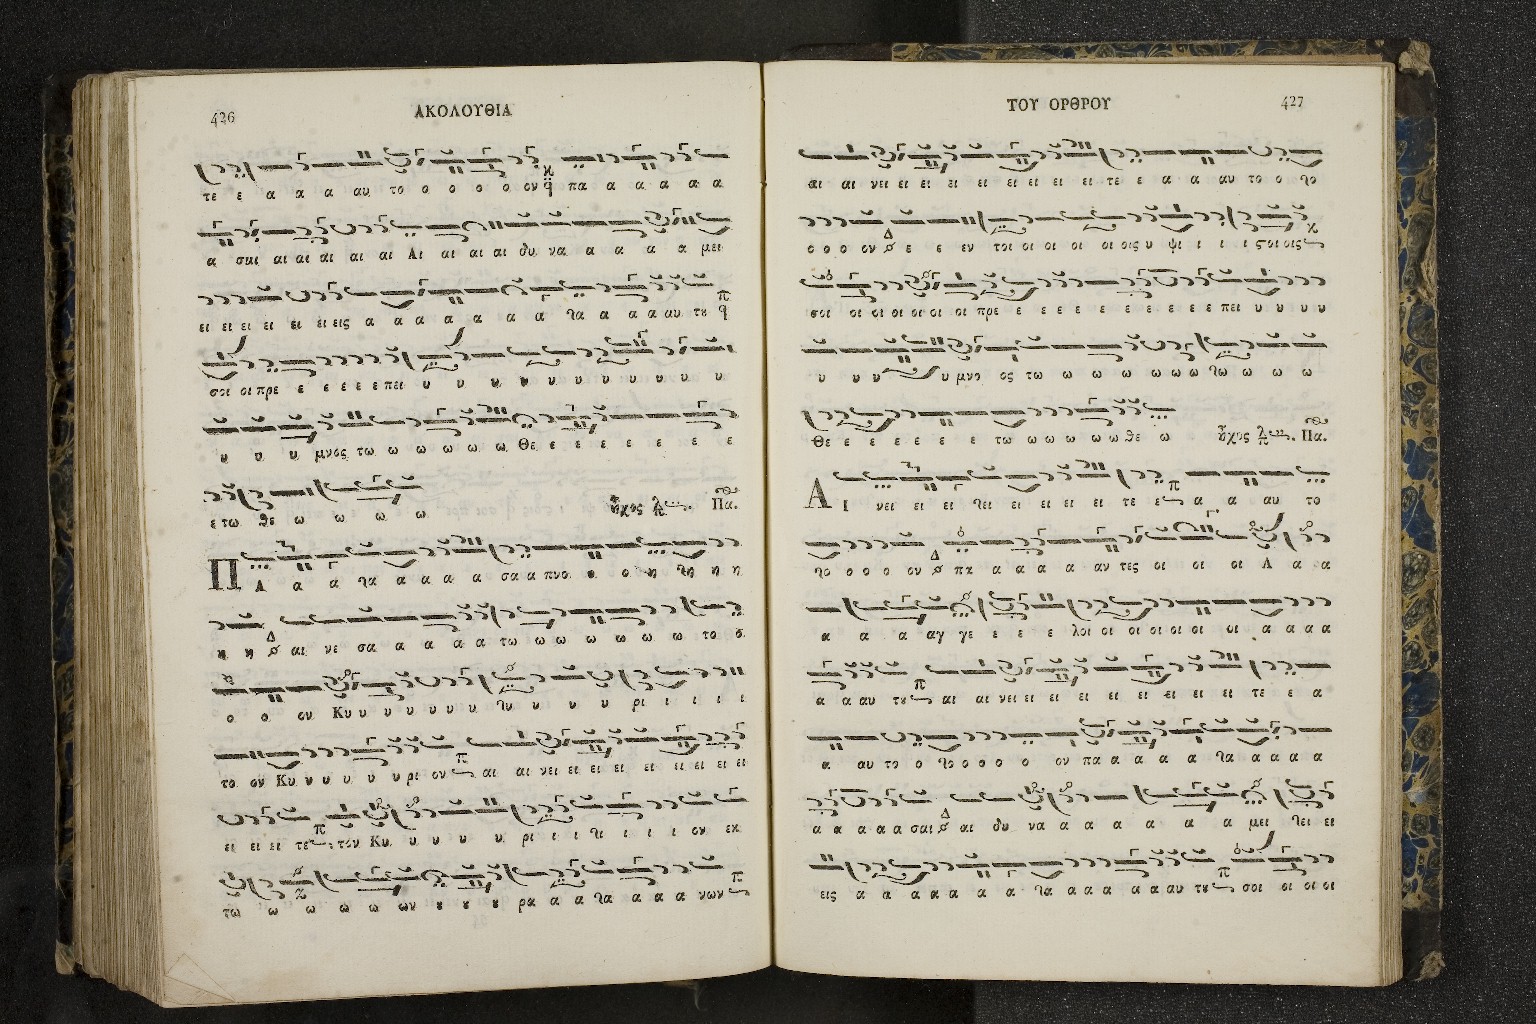 426
ΑΚΟΛΟΥΘΙΑ
τε ε α α α αυ το ο ο ο ο ον πα α α α α α
α σαι αι αι αι αι αι Αι αι αι αι δυ να α α α α μει
ει ει ει ει ει ει εις α α α α α α α α α α αυ τȣ
σοι οι πρε ε ε ε ε ε πει υ υ υ υ υ υ υ υ υ υ υ
υ υ υ μνος τω ω ω ω ω ω Θε ε ε ε ε ε ε ε
ε τω θε ω ω ω ω ἦχος Πα.
Π Α α α α α α α σα α πνο ο ο η η η
η η αι νε σα α α α α τω ω ω ω ω ω ω το ο
ο ο ον Κυ υ υ υ υ υ υ υ υ υ ρι ι ι ι ι
το ον Κυ υ υ υ υ υ ρι ον αι αι νει ει ει ει ει ει ει ει ει
ει ει ει τε τον Κυ υ υ υ υ ρι ι ι ι ι ι ον εκ
τω ω ω ω ω ων ȣ ȣ ȣ ρα α α α α α νων
ΤΟΥ ΟΡΘΡΟΥ
427
αι αι νει ει ει ει ει ει ει ει ει τε ε α α αυ το ο
ο ο ο ον ε ε εν τοι οι οι οι οι οις υ ψι ι ι ι ςοι οις
σοι οι οι οι οι οι οι πρε ε ε ε ε ε ε ε ε ε πει υ υ υ υ
υ υ υ υ μνο ος τω ω ω ω ω ω ω ω ω ω
Θε ε ε ε ε ε ε τω ω ω ω ω ω θε ω ἦχος Πα.
Α Ι νει ει ει ει ει ει ει ει τε ε α α αυ το
ο ο ο ον πα α α α α αν τες οι οι οι Α α α
α α α αγ γε ε ε ε λοι οι οι οι οι οι οι α α α α
α α αυ τȣ αι αι νει ει ει ει ει ει ει ει ει ει τε ε α
α αυ το ο ο ο ο ο ον πα α α α α α α α α
α α α α α σαι αι δυ να α α α α α α α μει ει ει
εις α α α α α α α α α α α αυ τȣ σοι οι οι οι